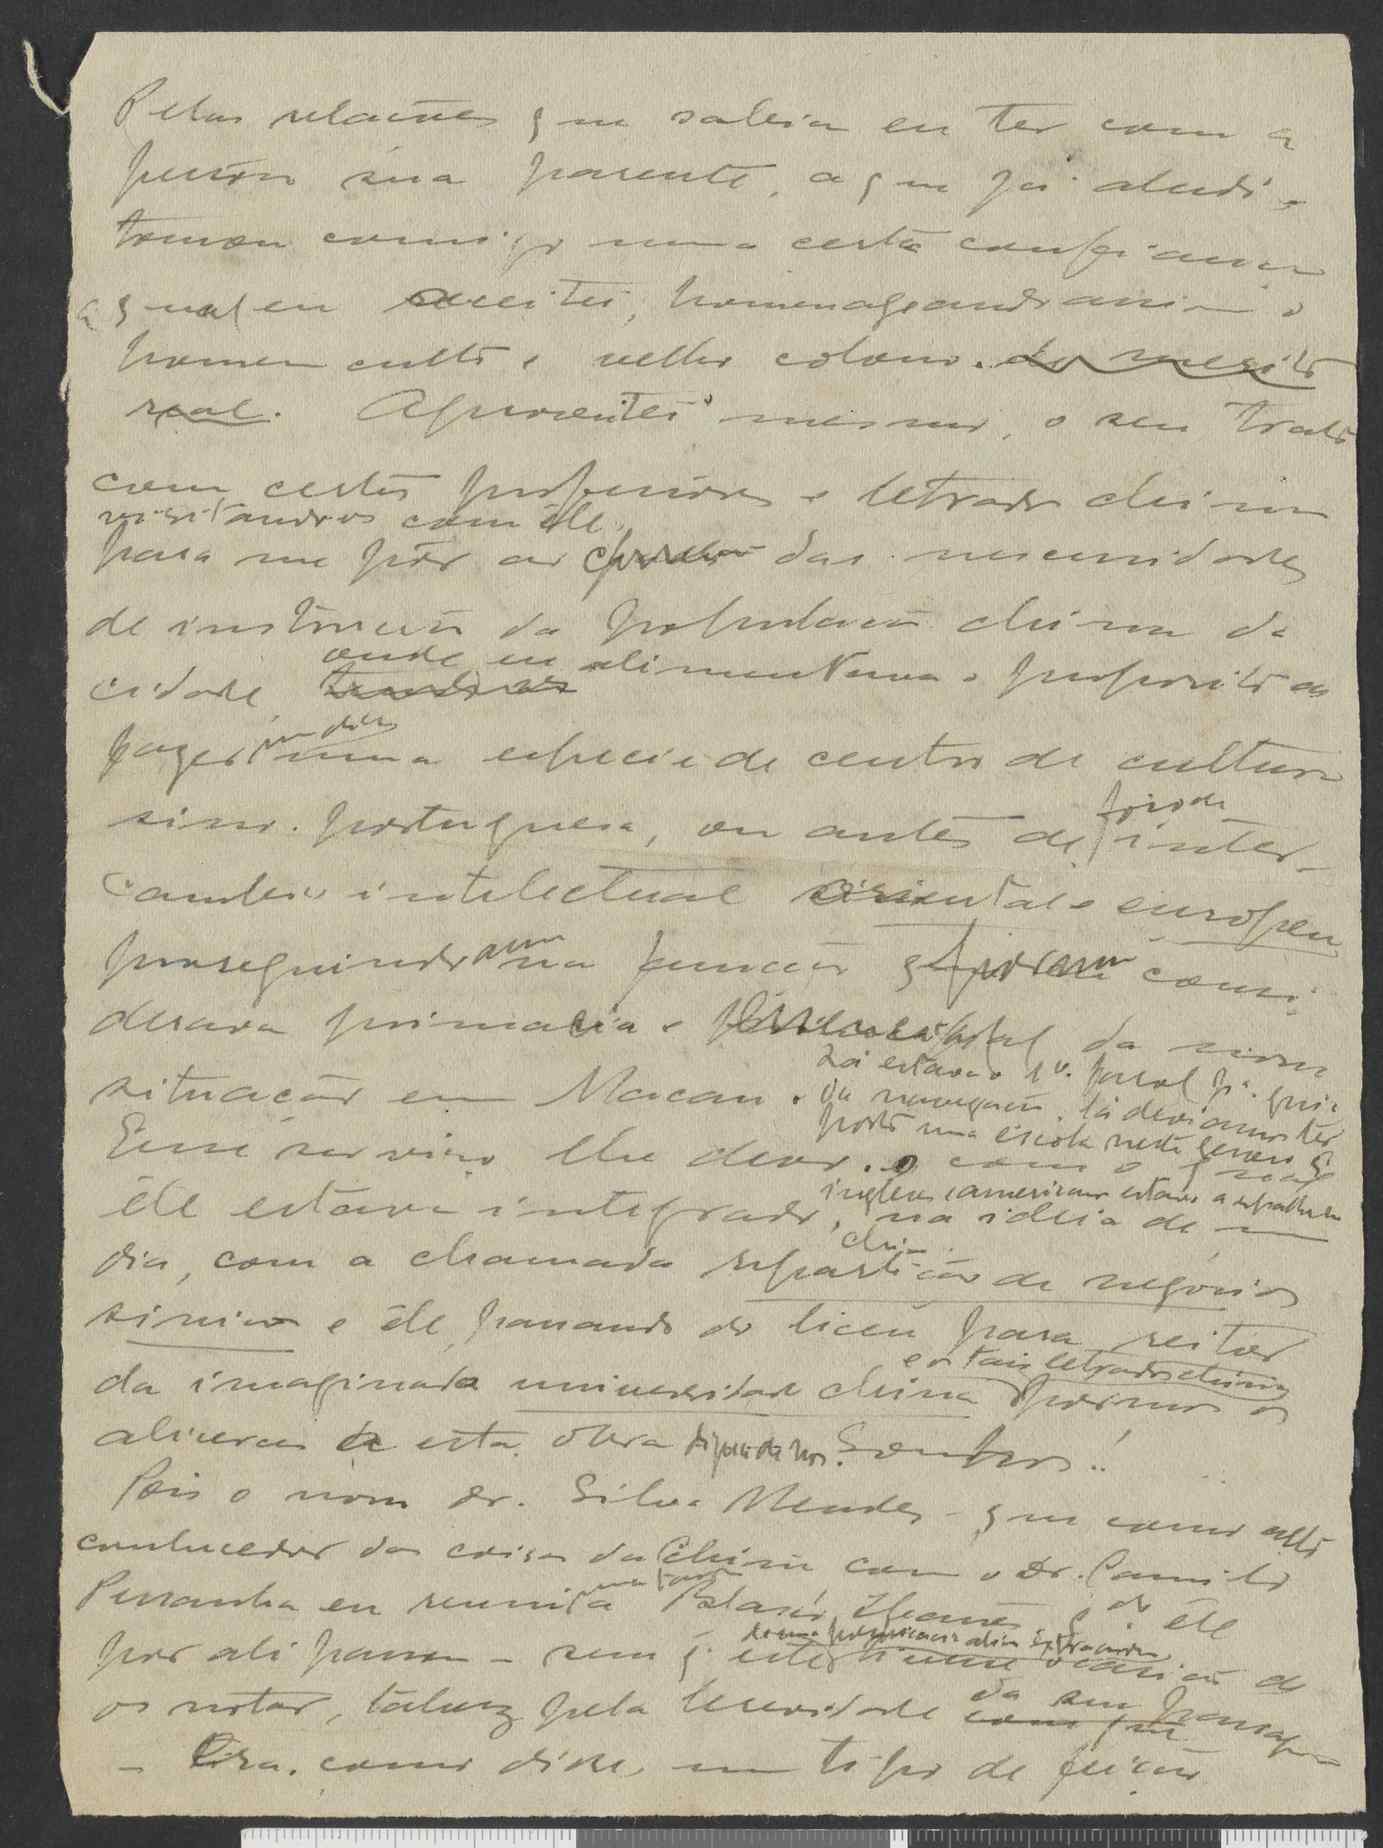 Pelas relações q̃ me sabia eu ter com a
pessôa sua parente, a q̃ me já aludi,
tomou comigo uma certa confiança
a qual eu aceitei, homenageando assim o
homem culto e velho colono. do merito
real. Aproveitei mesmo, o seu trato
com certos professores e letrados chinas
visitando-os com êle
para me pôr ao das necessidades
de instrucção da população china da
cidade, onde eu alimentava o proposito de
fazer um dia uma especie de centro de cultura
sino-portuguesa, ou antes de fóco de inter-
cambio intelectual oriental e europeu
proseguindo numa funcção q̃ consi-
derava primacia e principal da nossa
situação em Macau. Lá estava o 1º. farol pª. guia
da navegação. lá deviamos ter
posto uma escola neste genero q̃
Esse serviço lhe devo. e com o qual
ingleses e americanos estavam a espalhar na
china.
êle estava integrado, na ideia de um
dia, com a chamada repartição de negócios
sinicos e êle passando do liceu para reitor
da imaginada universidade china e os tais letrados chinas pormos os
alicerces a esta obra digna de nós. Sonhos!
Pois o nosso dr. Silva Mendes - que como alto
conhecedor das coisas da China com o Dr. Camilo
Pessanha eu reunira no Palacio, q.do êle
por ali passou - sem q̃ este tivesse ocasião de
os notar, talvez pela brevidade da sua passagem
- Era, como disse, um tipo de feição